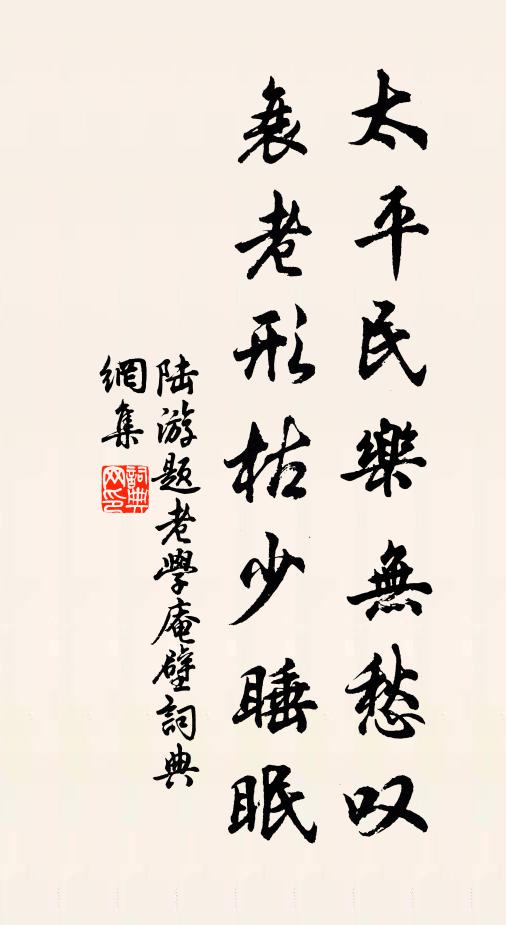 太平民樂無愁叹
衰老形枯少睡眠
陆游题老學庵壁詞典
網集
詞典
网印